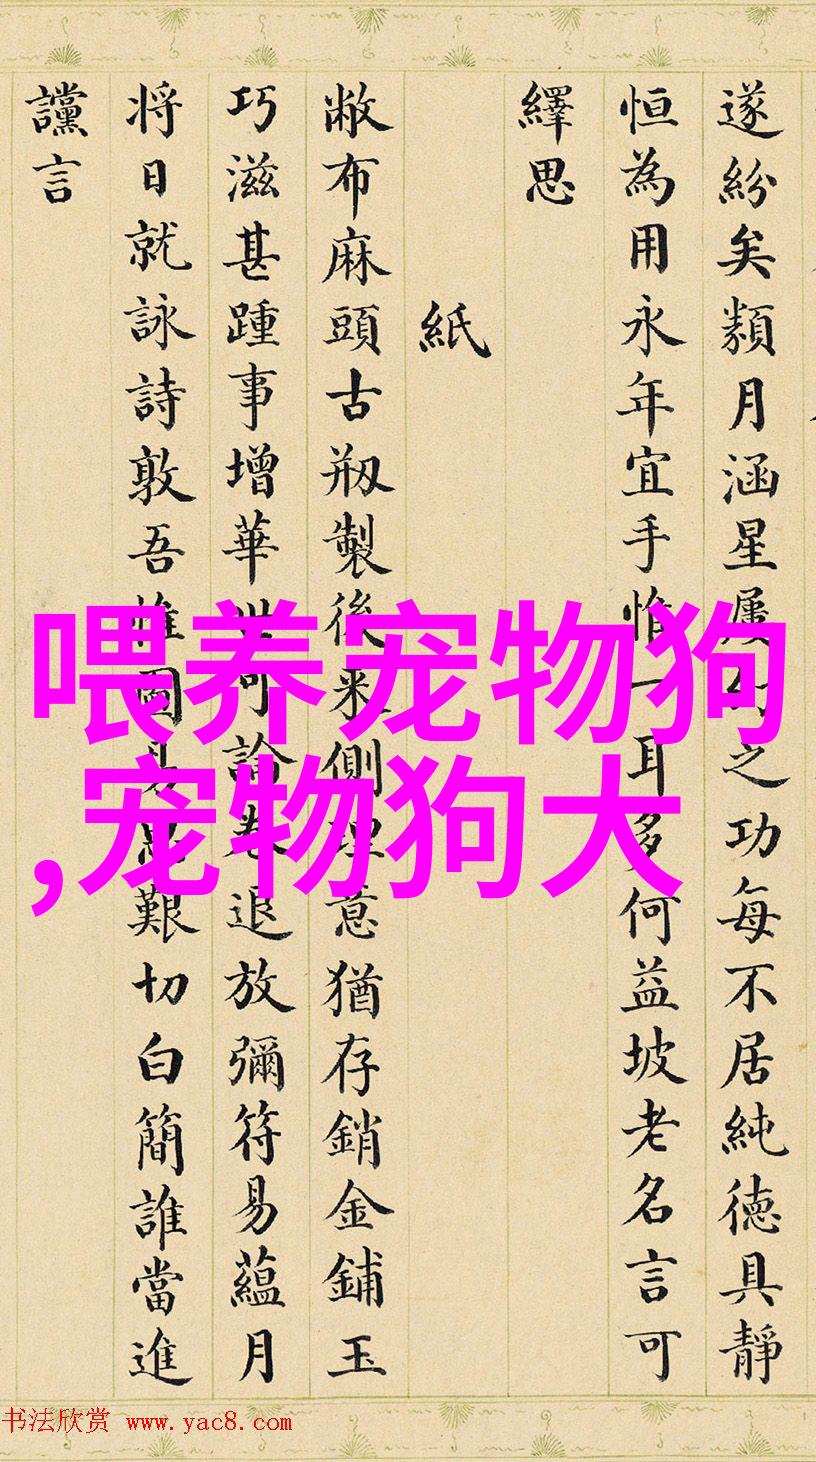 遂紛矣類月涵星屢
之功每不居純德具靜
恒為用永年宜手惟一耳多何益坡老名言可
繹思
紙
敝布麻頭古剏製後來側理意猶存銷金鋪玉
巧滋甚踵事增華
論
退放彌符易蘊月
将日就詠詩敦吾惟圖易
艱切白簡誰當進
讜言
喂养宠物狗
,宠物狗大
书法欣赏 www.yac8.com